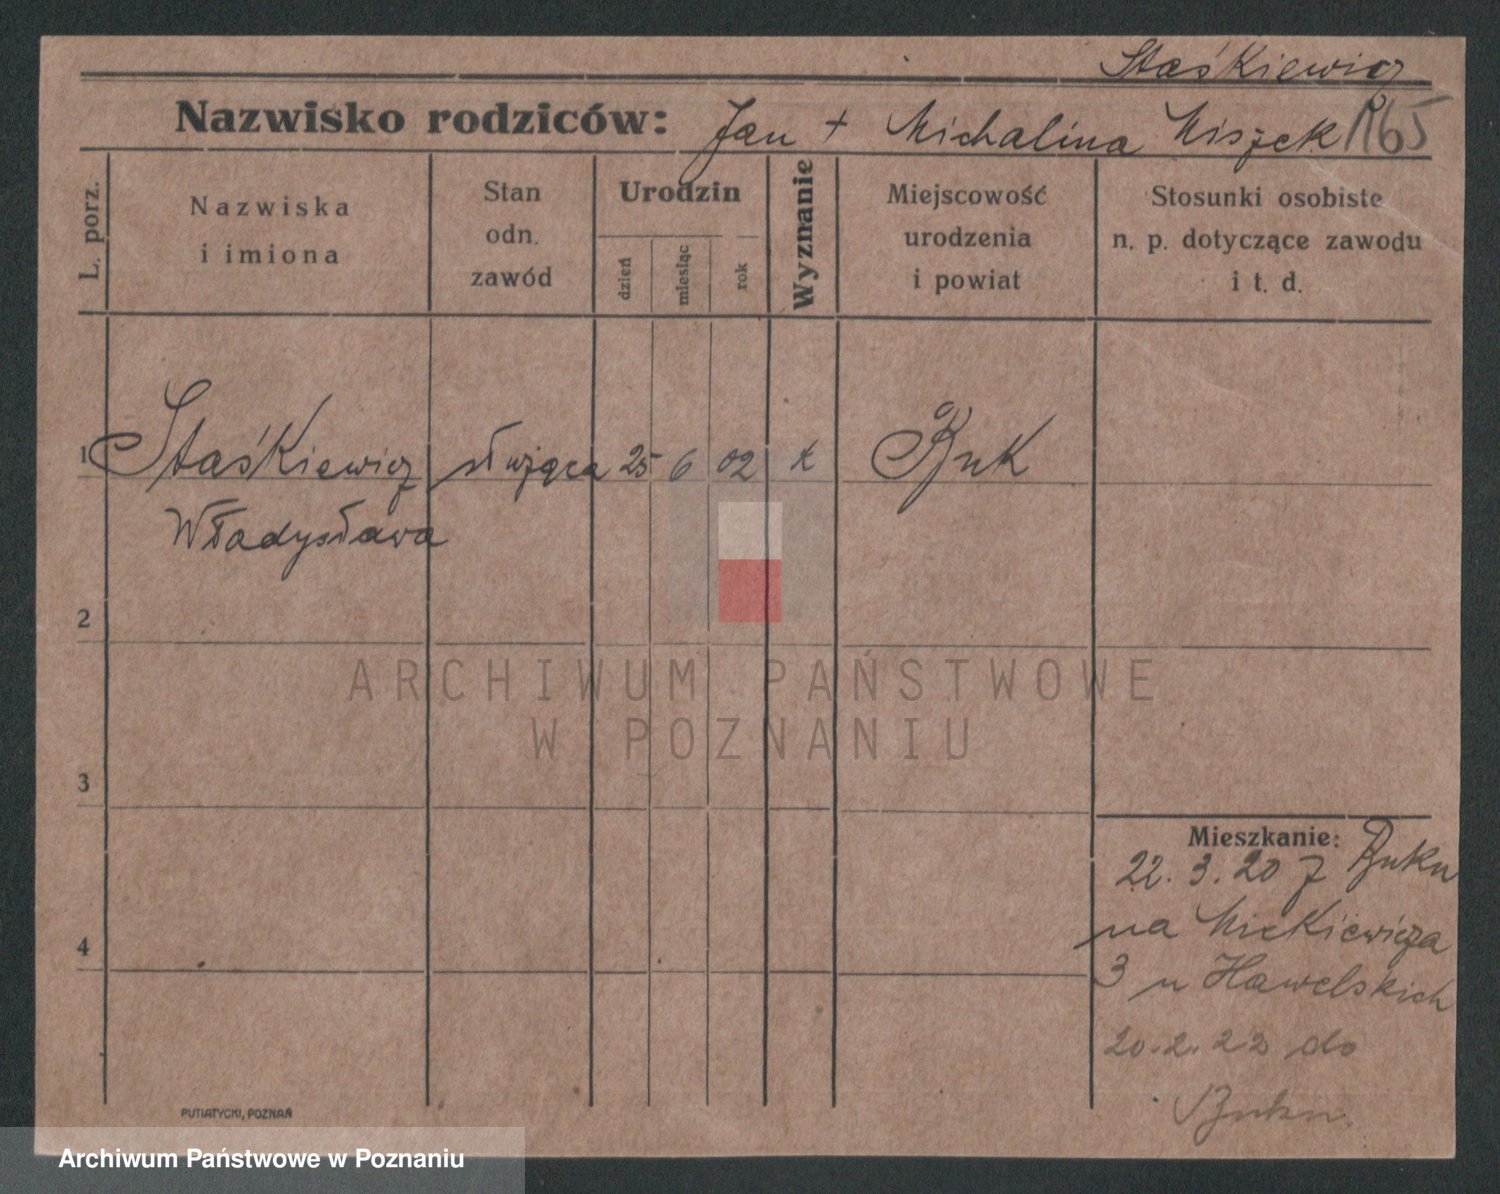 Staśkiewicz
Nazwisko rodziców: Jan + Michalina Miszek 1165
L. porz.
Nazwiska
i imiona
Stan
odn.
zawód
Urodzin
dzień
miesiąc
rok
Wyznanie
Miejscowość
urodzenia
i powiat
Stosunki osobiste
n. p. dotyczące zawodu
i t. d.
1 Staśkiewicz służąca 25 6 02 k Buk
Władysława
2
3
4
Mieszkanie:
22. 3. 20 z Buku
na Mickiewicza
3 u Hawelskich
20. 2. 22 do
Buku.
PUTIATYCKI, POZNAŃ
ARCHIWUM PAŃSTWOWE
W POZNANIU
Archiwum Państwowe w Poznaniu